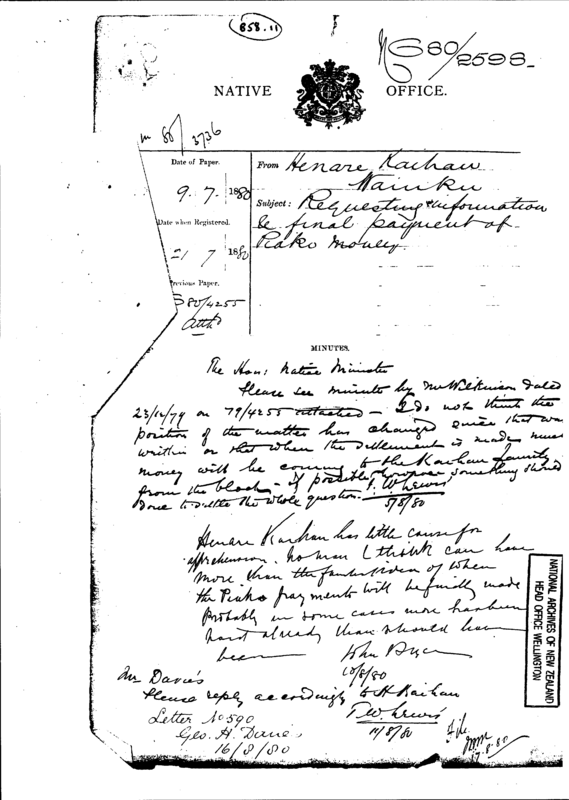 858.11
NG 80/2598
NATIVE OFFICE.
80/3736
Date of Paper.
9 . 7 . 1880
Date when Registered.
21 7 1880
Previous Paper.
80/4255
Attd
From Henare Kaihau
Waiuku
Subject: Requesting information
& final payment of
Piako money
MINUTES.
The Hon: Native Minister
Please see minute by Mr Wilkinson dated
23/12/79 on 79/4255 attached - I do not think the
position of the matter has changed since that was
written or that when the settlement is made much
money will be coming to the Kaihau family
from the block - If possible however something should
done to settle the whole question. T. W Lewis
5/8/80
Henare Kaihau has little cause for
apprehension. No man I think can have
more than the idea of when
the Piako payments will be finally made
Probably in some cases more has been
paid already than should have
been John Bryce
10/8/80
Mr Davies
Please reply accordingly to H Kaihau
T.W. Lewis
11/8/80
Letter No 590
Geo. H. Davies
16/8/80
File
17.8.80
NATIONAL ARCHIVES OF NEW ZEALAND
HEAD OFFICE WELLINGTON